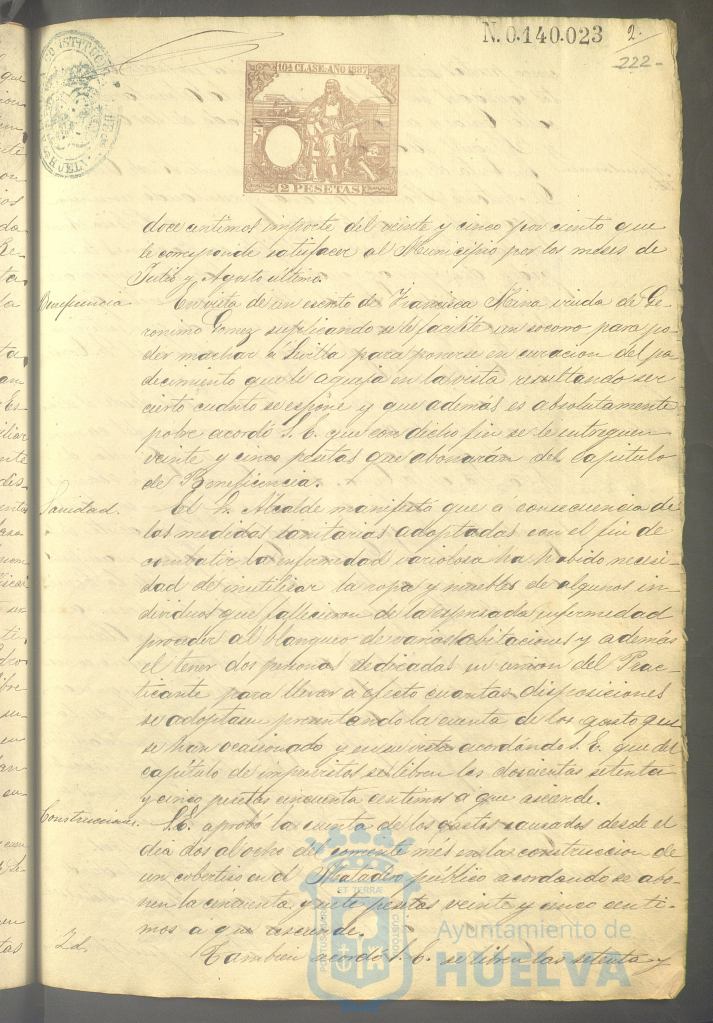 N. 0.140.023
2.
222-
10ª CLASE. AÑO 1887
2 PESETAS
doce centimos importe del veinte y cinco por ciento que
le corresponde satisfacer al Municipio por los meses de
Julio y Agosto último.
Beneficencia
En vista de un escrito de Francisca Mina viuda de Ge-
ronimo Gomez suplicando se le facilite un socorro para po-
der marchar á Sevilla para ponerse en curacion del pa-
decimiento que le aqueja en la vista resultando ser
cierto cuanto se espone y que además es absolutamente
pobre acordó S. E. que con dicho fin se le entreguen
veinte y cinco pesetas que abonarán del Capitulo
de Beneficencia.
Sanidad.
El S. Alcalde manifestó que a consecuencia de
las medidas sanitarias adoptadas con el fin de
combatir la enfermedad variolosa ha habido necesi-
dad de inutilizar la ropa y muebles de algunos in-
dividuos que fallecieron de la espresada enfermedad
proceder al blanqueo de varias abitaciones y además
el tener dos personas dedicadas en union del Prac-
ticante para llevar a efecto cuantas disposiciones
se adoptasen presentando la cuenta de los gastos que
se han ocasionado y en su vista acordando S. E. que del
capítulo de imprevistos se libren las doscientas setenta
y cinco pesetas cincuenta centimos a que asciende.
Construcciones.
S. E. aprobó la cuenta de los gastos causados desde el
dia dos al ocho del corriente mes en la construccion de
un cobertizo en el Matadero público acordando se abo-
nen la cincuenta y siete pesetas veinte y cinco centi-
mos a que asciende.
Id.
Tambien acordó S. E. se libren las setenta y
PORTUS MARIS
ET TERRAE
CUSTODIA
Ayuntamiento de
HUELVA